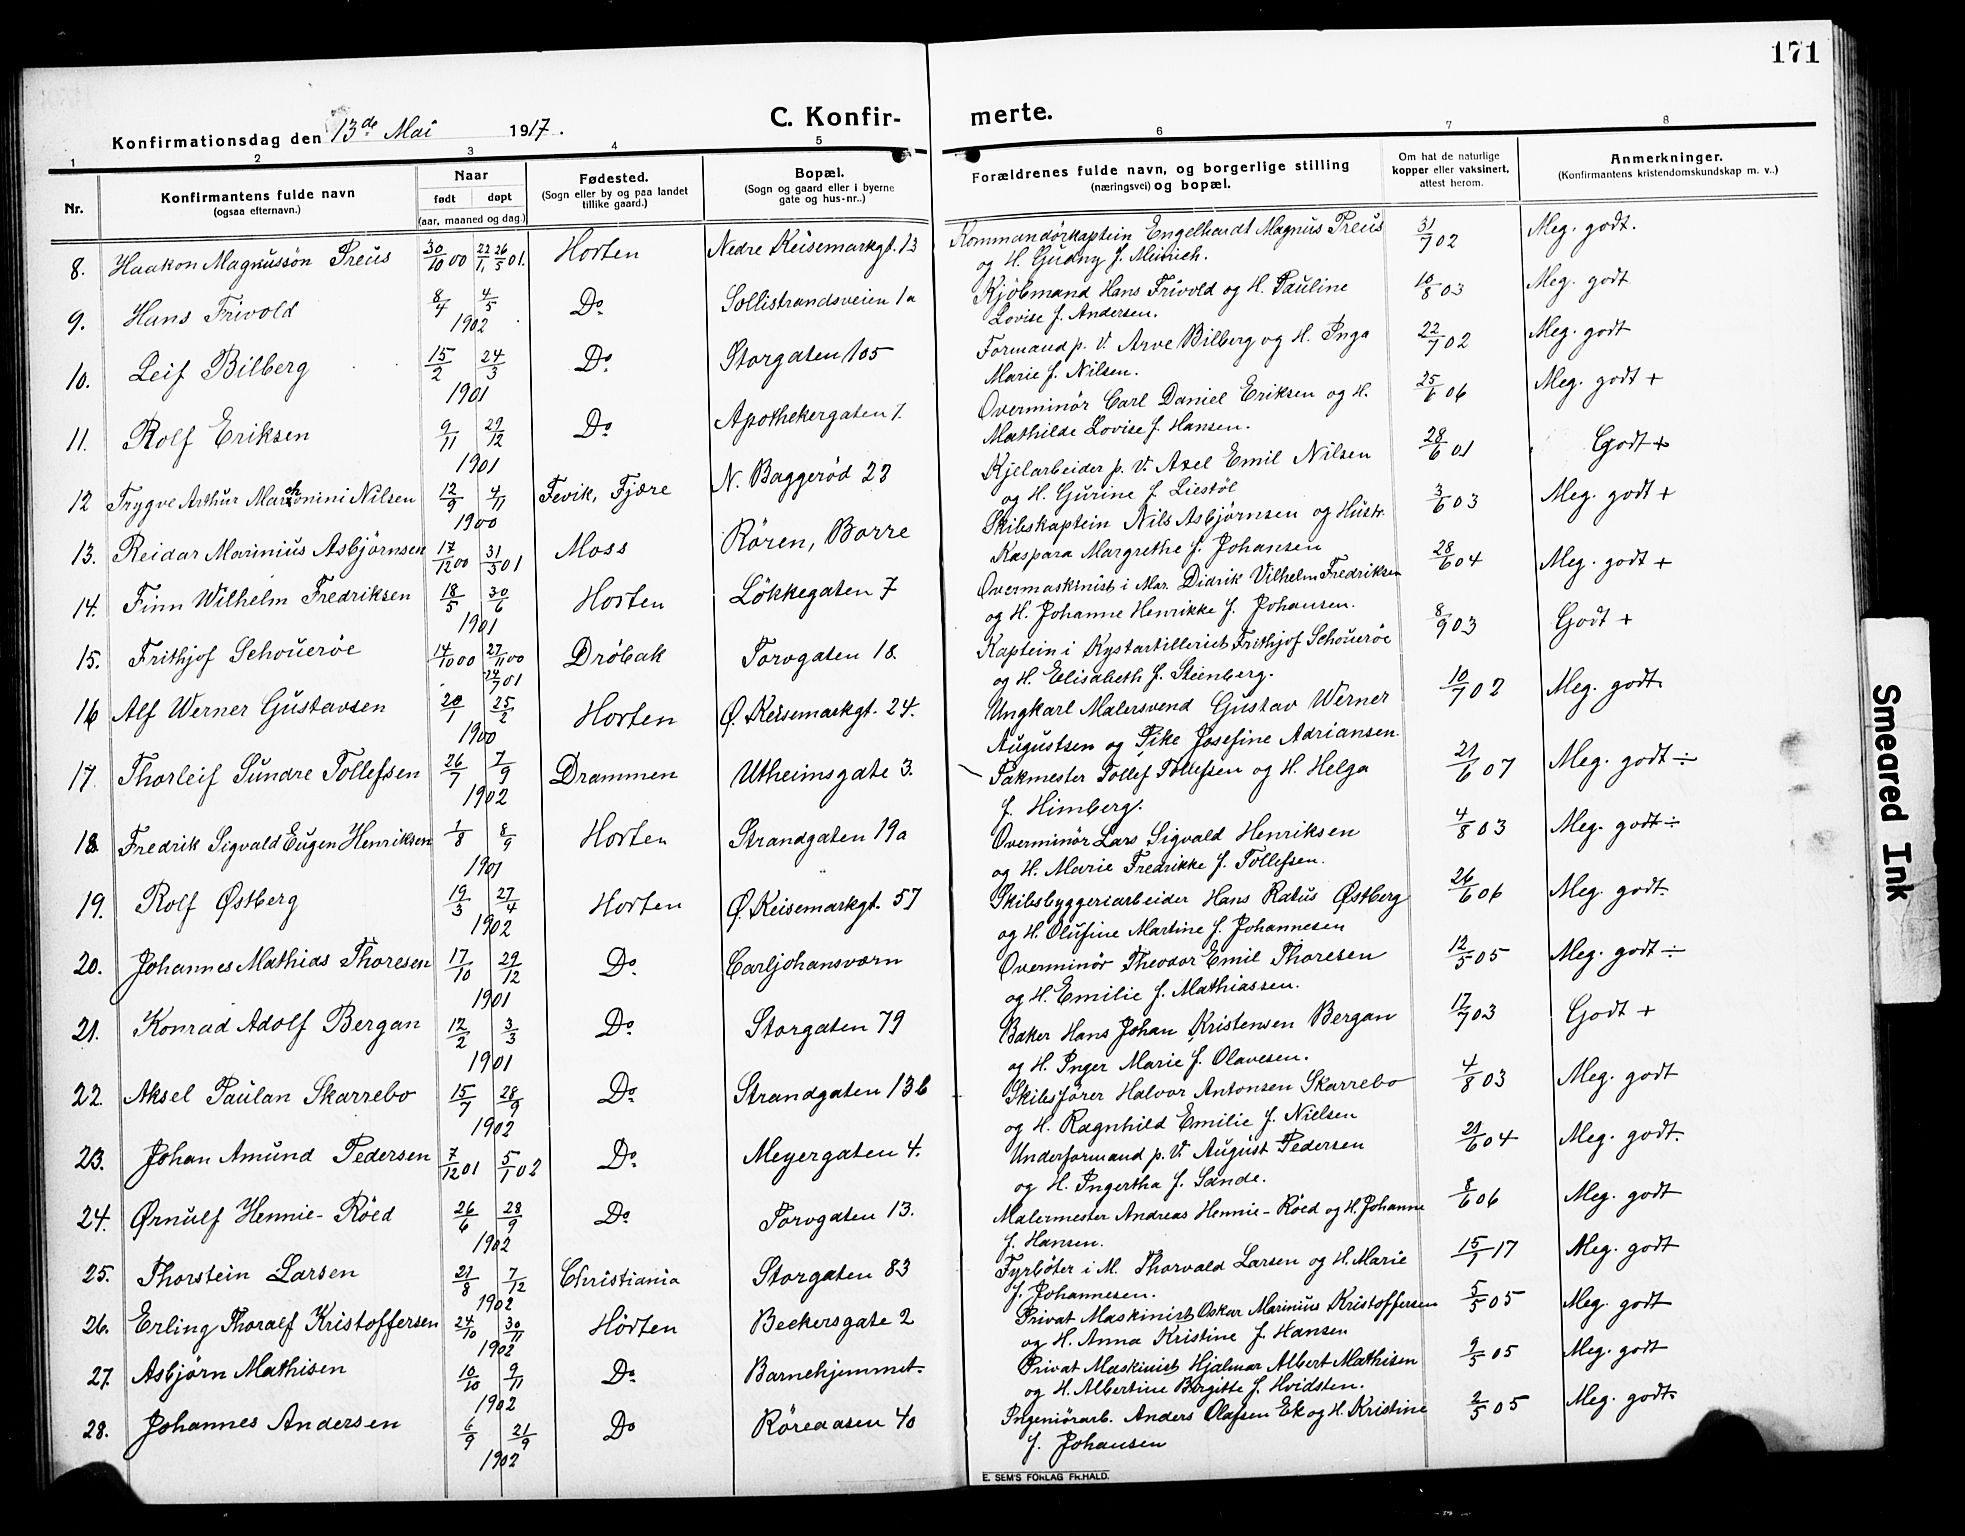 171
C. Konfirmerte.
Konfirmationsdag den 13de Mai 1917.
1 2 3 4 5 6 7 8
Nr.
Konfirmantens fulde navn
(ogsaa efternavn.)
Naar
født døpt
(aar, maaned og dag.)
Fødested.
(Sogn eller by og paa landet
tillike gaard.)
Bopæl.
(Sogn og gaard eller i byerne
gate og hus-nr..)
Forældrenes fulde navn, og borgerlige stilling
(næringsvei) og bopæl.
Om hat de naturlige
kopper eller vaksinert,
attest herom.
Anmerkninger.
(Konfirmantens kristendomskundskap m. v..)
8. Haakon Magnussön Preus 30/10 00 22/1 26/5 01. Horten Nedre Keisemarkgt. 13 Kommandørkaptein Engelhardt Magnus Preus 31/7 02 Meg. godt.
og H. Gudny f. Meinich.
9. Hans Frivold 8/4 4/5 1902 Do Sollistrandsveien 1a Kjöbmand Hans Frivold og H. Pauline 10/8 03 Meg. godt
Lovise f. Andersen.
10. Leif Bilberg 15/2 24/3 1901 Do Storgaten 105 Formand p. V. Arve Bilberg og H. Inga 22/7 02 Meg. godt
Marie f. Nilsen.
11. Rolf Eriksen 9/11 29/12 1901 Do Apothekergaten 7. Overminör Carl Daniel Eriksen og H. 25/6 06 Meg. godt +
Mathilde Lovise f. Hansen.
12 Trygve Arthur Marchonini Nilsen 12/9 4/11 1900 Fevik, Fjære N. Baggerød 23 Kjelarbeider p. V. Axel Emil Nilsen 28/6 01 Godt +
og H. Gurine f. Liestöl
13. Reidar Marinius Asbjörnsen 17/12 00 31/3 01 Moss Rören, Borre Skibskaptein Nils Asbjörnsen og Hustr. 3/6 03 Meg. godt +
Kaspara Margrethe f. Johansen
14. Finn Wilhelm Fredriksen 18/5 30/6 1901 Horten Lökkegaten 7 Overmaskinist i Mar. Didrik Vilhelm Fredriksen 28/6 04 Meg. godt +
og H. Johanne Henrikke f. Johansen.
15. Frithjof Schoueröe 14/10 00 27/11 00 14/7 01 Dröbak Torvgaten 18. Kaptein i Kystartilleriet Frithjof Schouerøe 8/9 03 Godt +
og H. Elisabeth f. Steenberg.
16 Alf Werner Gustavsen 20/1 25/2 1900 Horten Ø. Keisemarkgt. 24. Ungkarl Malersvend Gustav Werner 10/7 02 Meg. godt.
Augustsen og Pike Josefine Adriansen
17 Thorleif Sundre Tollefsen 26/7 7/9 1902 Drammen Utheimsgate 3. Pakmester Tollef Tollefsen og H. Helga 21/6 07 Meg. godt ÷
f. Himberg.
18. Fredrik Sigvald Eugen Henriksen 1/8 8/9 1901 Horten Strandgaten 19a Overminör Lars Sigvald Henriksen 4/8 03 Meg. godt ÷
og H. Marie Fredrikke f. Tollefsen.
19. Rolf Østberg 19/3 27/4 1902 Horten Ø. Keisemarkgt. 57 Skibsbyggeriarbeider Hans Ratus Østberg 26/6 06 Meg. godt.
og H. Olufine Martine f. Johannesen
20. Johannes Mathias Thoresen 17/10 29/12 1901 Do Carljohansværn Overminör Theodor Emil Thoresen 12/5 05 Meg. godt ÷
og H. Emilie f. Mathiassen.
21. Konrad Adolf Bergan 12/2 3/3 1901 Do Storgaten 79 Baker Hans Johan Kristensen Bergan 17/7 03 Godt +
og H. Inger Marie f. Olavesen.
22. Aksel Paulan Skarrebo 15/7 28/9 1902 Do Strandgaten 13b Skibsfører Halvor Antonsen Skarrebo 4/8 03 Meg. godt
og H. Ragnhild Emilie f. Nielsen
23. Johan Amund Pedersen 7/12 01 5/1 02 Do Meyergaten 4. Underformand p. V. August Pedersen 21/6 04 Meg. godt.
og H. Ingertha f. Sande.
24. Ørnulf Hennie-Röed 26/6 28/9 1902 Do Torvgaten 13. Malermester Andreas Hennie-Röed og H. Johanne 8/6 06 Meg. godt
f. Hansen.
25. Thorstein Larsen 21/8 7/12 1902 Christiania Storgaten 83 Fyrböter i M. Thorvald Larsen og H. Marie 15/1 17 Meg. godt
f. Johannesen.
26. Erling Thoralf Kristoffersen 24/10 30/11 1902 Horten Beckersgate 2 Privat Maskinist Oskar Marinius Kristoffersen 5/5 05 Meg. godt
og H. Anna Kristine f. Hansen
27. Asbjørn Mathisen 10/10 9/11 1902 Do Barnehjemmet. Privat Maskinist Hjalmar Albert Mathisen 9/5 05 Meg. godt
og H. Albertine Birgitte f. Hvidsten.
28. Johannes Andersen 6/9 21/9 1902 Do Röreaasen 40 Ingeniörarb. Anders Olafsen Ek og H. Kristine 2/5 05 Meg. godt.
f. Johansen
E. SEM'S FORLAG FR.HALD.
Smeared Ink